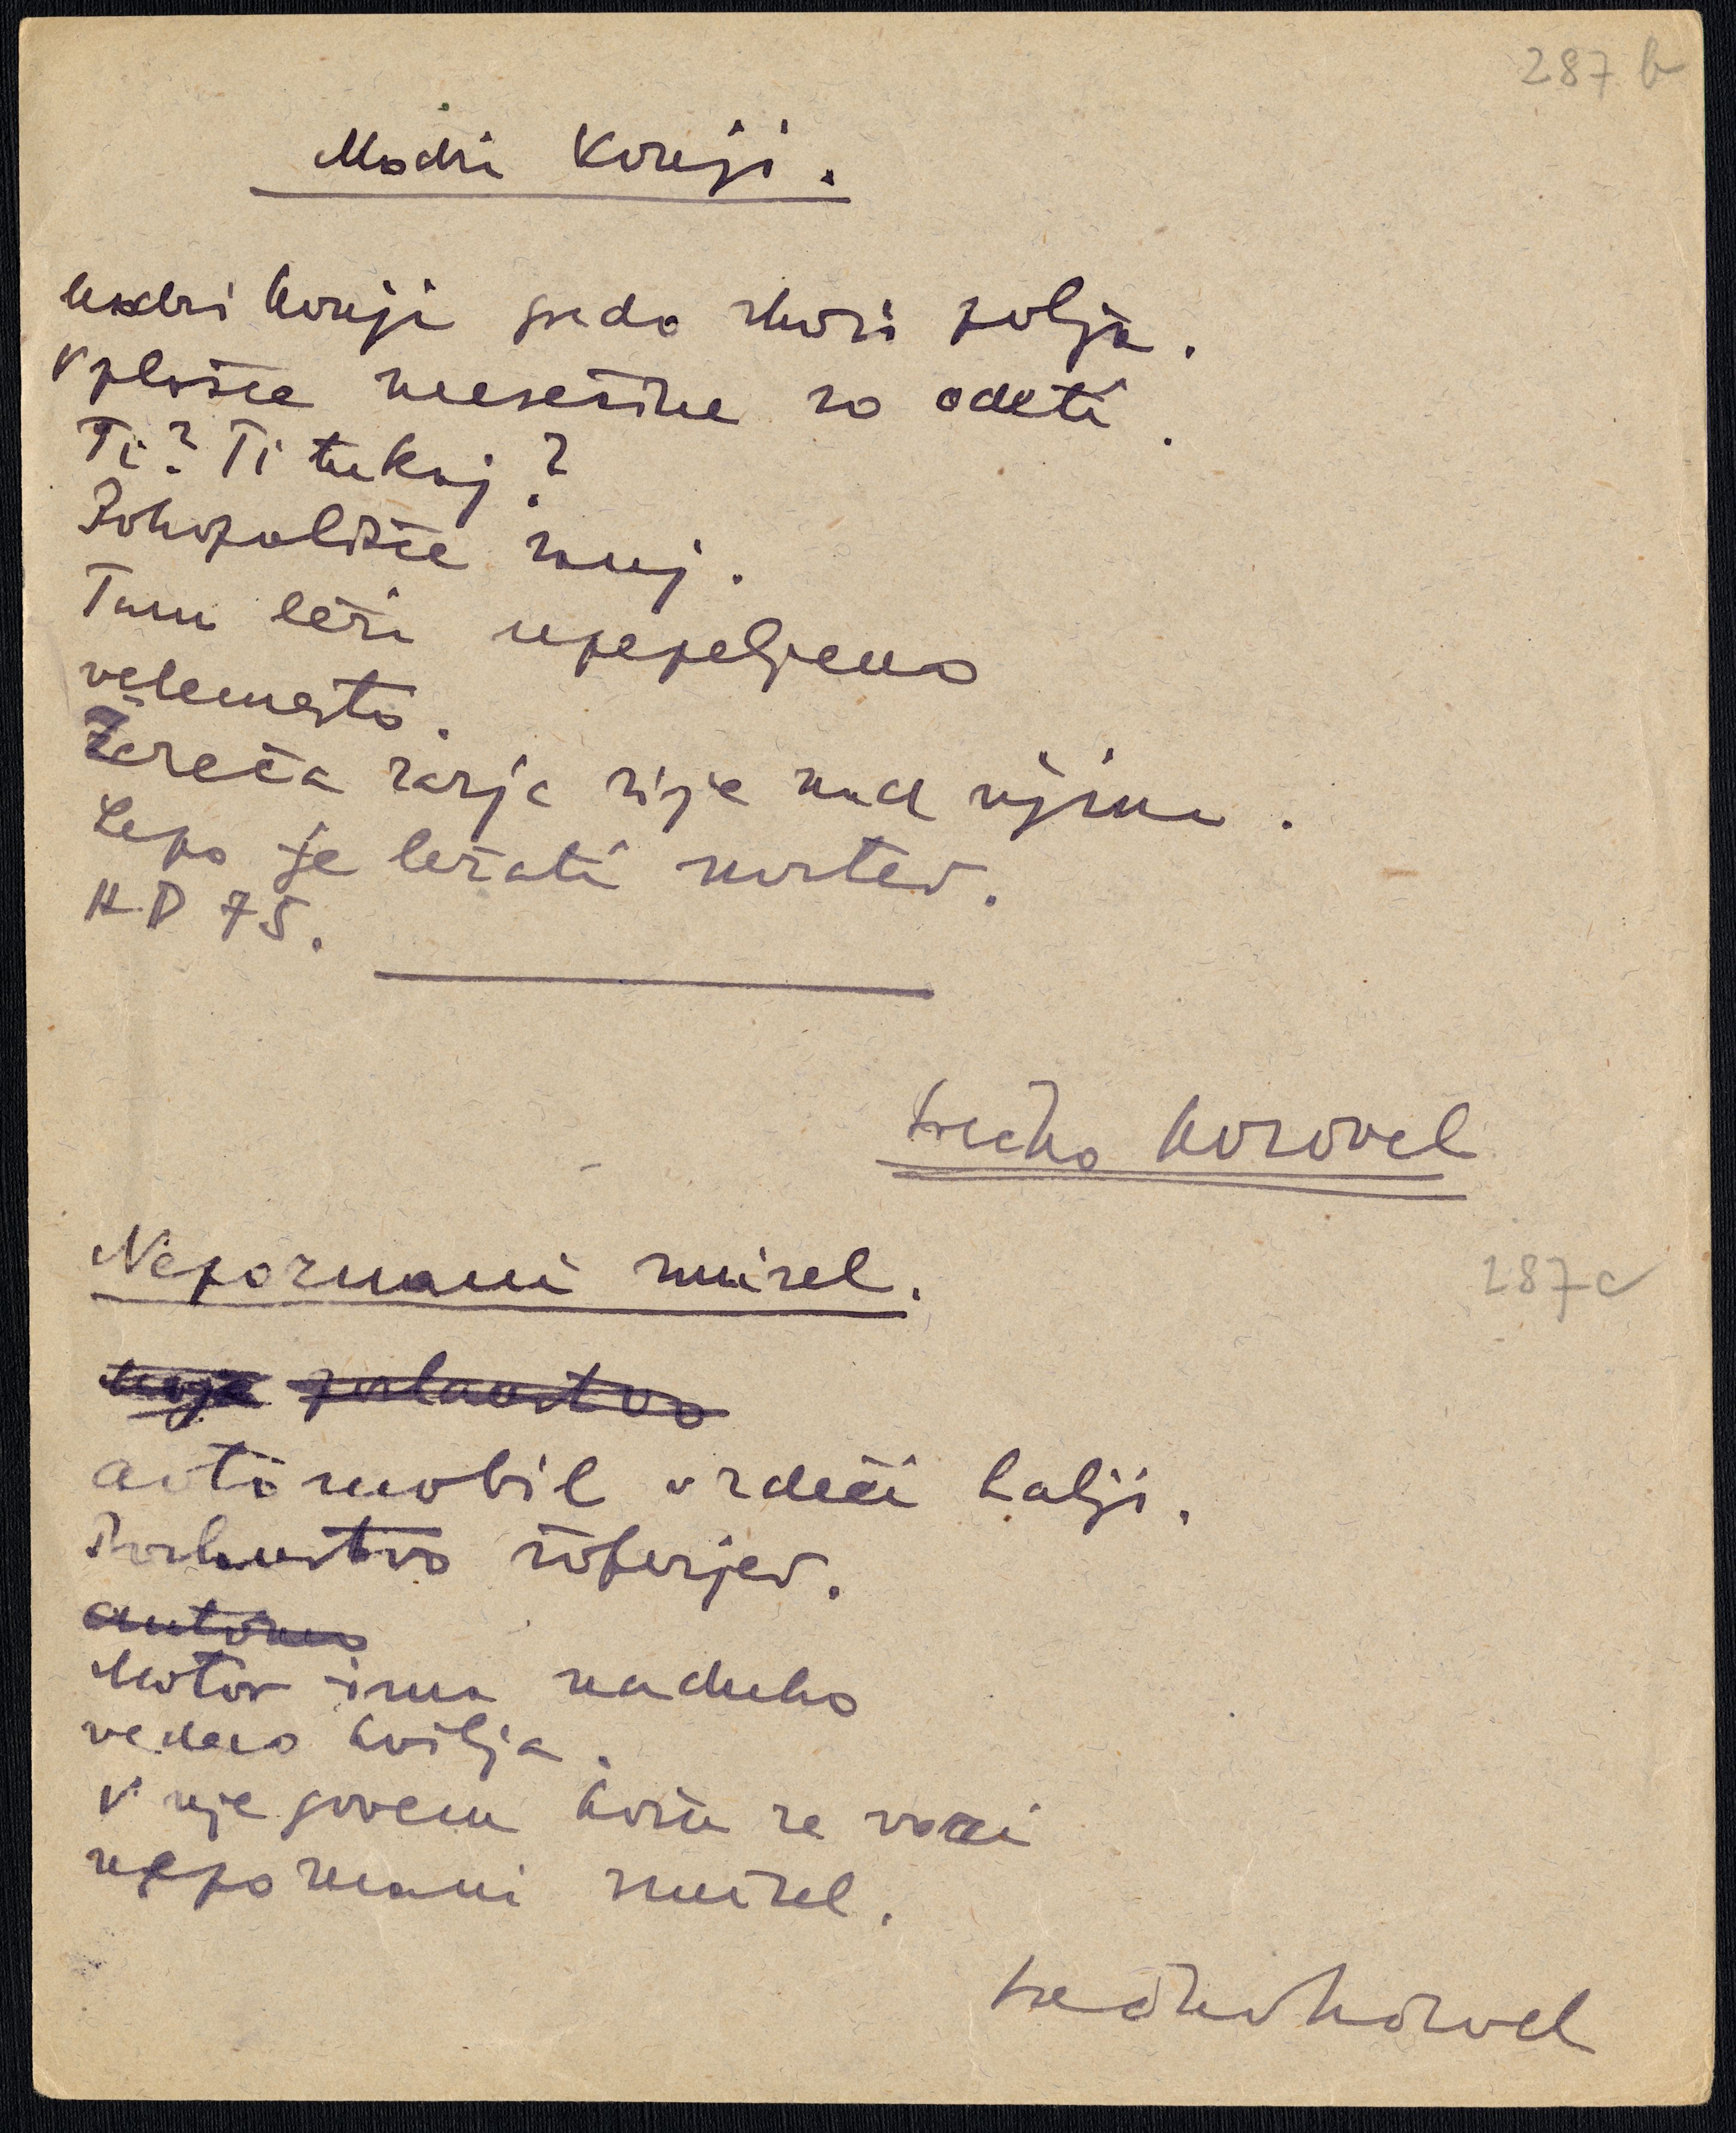 287 b
Modri konji.
Modri konji gredo skozi polja.
V plašče mesečine so odeti.
Ti? Ti tukaj?
Pokopališče sanj.
Tam leži upepeljeno
velemesto.
Žareča zarja sije nad njim.
Lepo je ležati mrtev.
H.D 75.
Srečko Kosovel
Neporavnani smisel.
moja poslanstvo
avtomobil rdeči halji.
Poslanstvo šoferjev.
automo
Motor ima naduho
vedno kašlja.
V njegovem košu se vozi
nepoznani smisel.
287 c
Srečko Kosovel